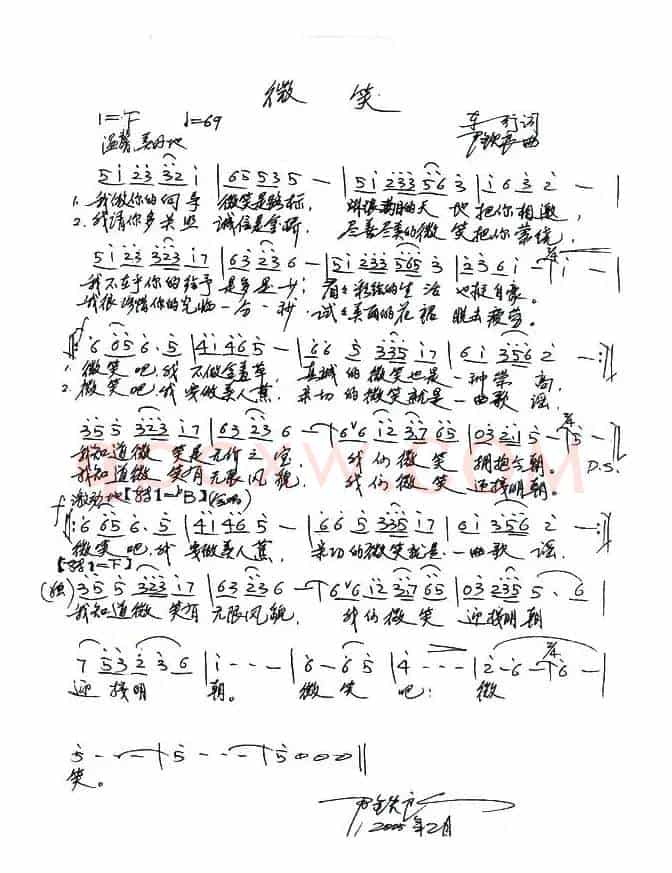 微 笑
1=F ♩=69 车 行词
温馨 美好地 曲
5 1 2 3 3 2 1 | 6 5 5 3 5 - | 5 1 2 3 3 5 6 3 | 1 6 3 2 - |
1. 我做你的向导 微笑是路标, 的天 地把你相邀,
2. 我请你多关照 诚信是金桥, 尽善尽美的微 笑把你
5 1 2 3 3 2 3 1 7 | 6 3 2 3 6 - | 5 1 2 3 3 5 6 5 3 | 2 3 6 1 - | 1 - |
我不在乎你的给予 是多是少; 看看 的生活 也挺自豪。
我很 你的光临一分一秒, 试试美丽的花裙 脱去疲劳。
f 6 6 5 6 . 5 | 4 1 4 6 5 - | 6 6 5 3 3 5 1 7 | 6 1 3 5 6 2 - :||
1. 微笑吧,我 不做含羞草, 真诚的微笑也是一种崇高,
2. 微笑吧,我 要做美人蕉, 亲切的微笑就是一曲歌谣,
3 5 5 3 2 3 1 7 | 6 3 2 3 6 - | 6 6 1 2 3 . 7 6 5 | 0 3 2 1 5 - | 5 - ||
我知道微笑是无价之宝, 我们微笑 拥抱今朝。 D.S.
我知道微笑有无限风貌, 我们微笑 迎接明朝。
qpcxw.com
f 激动地【转1=ᵇB】(合唱)
6 6 5 6 . 5 | 4 1 4 6 5 - | 6 6 5 3 3 5 1 7 | 6 1 3 5 6 2 - :||
微笑吧,我 要做美人蕉, 亲切的微笑就是一曲歌 谣,
【转1=F】
(独) 3 5 5 3 2 3 1 7 | 6 3 2 3 6 - | 6 6 1 2 3 . 7 6 5 | 0 3 2 3 5 5 . 6 |
我知道微 笑有 无限风貌, 我们微笑 迎接明朝
7 5 3 2 3 6 | 1 - - - | 6 - 6 5 | 4 - - - | 2 - 6 - | 6 - |
迎接明 朝。 微 笑 吧! 微
5 - - - | 5 - - - | 5 0 0 0 ||
笑。
2005年2月